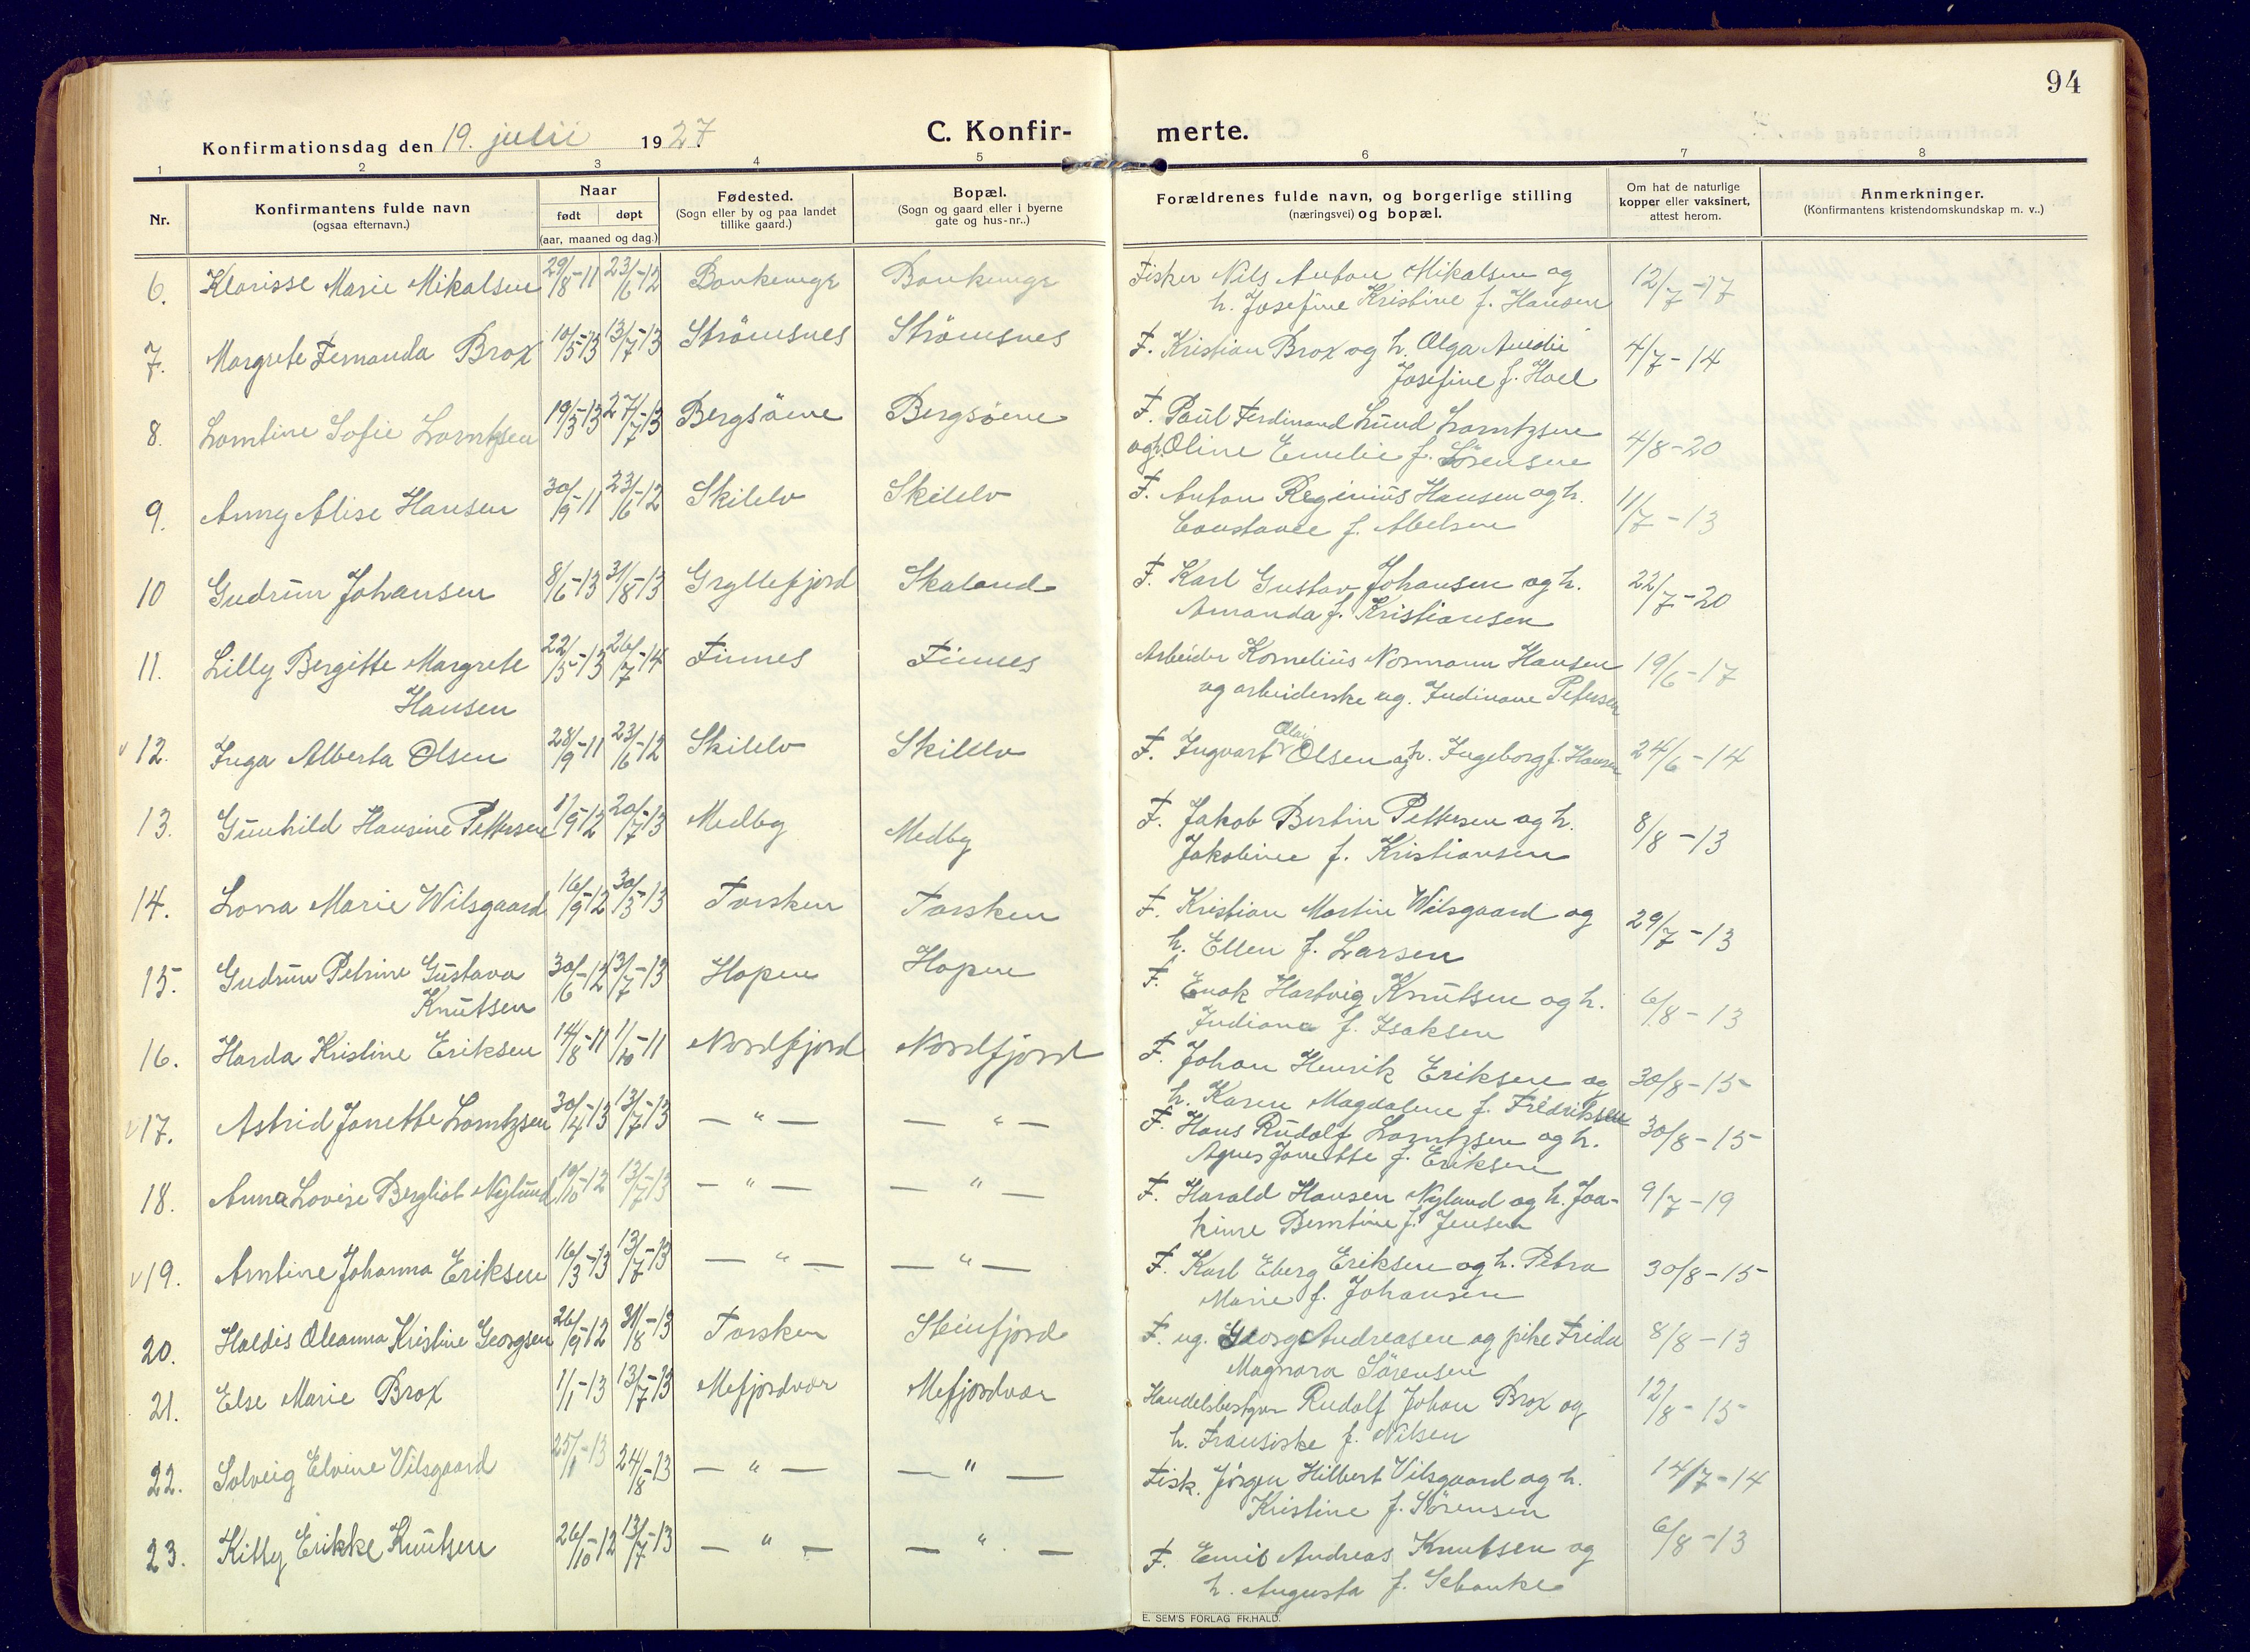 94
Konfirmationsdag den 19. julii 1927.
C. Konfir- merte.
1 2 3 4 5 6 7 8
Nr.
Konfirmantens fulde navn
(ogsaa efternavn.)
Naar
født døpt
(aar, maaned og dag.)
Fødested.
(Sogn eller by og paa landet
tillike gaard.)
Bopæl.
(Sogn og gaard eller i byerne
gate og hus-nr..)
Forældrenes fulde navn, og borgerlige stilling
(næringsvei) og bopæl.
Om hat de naturlige
kopper eller vaksinert,
attest herom.
Anmerkninger.
(Konfirmantens kristendomskundskap m. v..)
6. Klarisse Marie Mikalsen 29/8-11 23/6-12 Fisker Nils Anton Mikalsen og 12/7-17
h. Josefine Kristine f. Hansen
7. Margrete Fernanda Brox 10/5-13 13/7-13 Strömsnes Strömsnes F. Kristian Brox og h. Olga 4/7-14
Josefine f. Hoel
8. Lorntine Sofie Lorntzen 19/3-13 27/7-13 Bergsöene Bergsöene F. Paul Ferdinand Lund Lorntzsen 4/8-20
og h. Oline Emelie f. Sörensen
9. Anny Alise Hansen 30/9-11 23/6-12 Skilelv Skilelv F. Anton Reginius Hansen og h. 11/7-13
Constance f. Abelsen
10 Gudrun Johansen 8/6-13 31/8-13 Gryllefjord Skaland F. Karl Gustav Johansen og h. 22/7-20
Amanda f. Kristiansen
11. Lilly Bergitte Margrete 22/5-13 26/7-14 Finnes Finnes Arbeider Kornelius Normann Hansen 19/6-17
Hansen og arbeiderske ug. Indianne Petersen
v 12. Inga Alberta Olsen 28/9-11 23/6-12 Skilelv Skilelv F. Ingvart Olai Olsen og h. Ingeborg f. Hansen 24/6-14
13. Gunhild Hansine Pettersen 1/9-12 20/7-13 Medby Medby F. Jakob Bertin Pettersen og h. 8/8-13
Jakobine f. Kristiansen
14. Lovra Marie Wilsgaard 16/9-12 30/3-13 Torsken Torsken F. Kristian Martin Wilsgaard og 29/7-13
h. Ellen f. Larsen
15. Gudrun Petrine Gustava 30/6-12 13/7-13 Hopen Hopen F. Enok Hartvig Knutsen og h. 6/8-13
Knutsen Indiane f. Isaksen
16. Harda Kristine Eriksen 14/8-11 1/10-11 Nordfjord Nordfjord F. Johan Henrik Eriksen og 30/8-15
h. Karen Magdalene f. Fredriksen
v 17. Astrid Janette Lorntzsen 30/4-13 13/7-13 — " — — " — F. Hans Rudolf Lorntzsen og h. 30/8-15
Agnes Janette f. Eriksen
18. Anna Lovise Bergliot Nylund 19/10-12 13/7-13 — " — — " — F. Harald Hansen Nylund og h. Joa- 9/7-19
kime Berntine f. Jensen
v 19. Arntine Johanna Eriksen 16/3-13 13/7-13 — " — — " — F. Karl Eberg Eriksen og h. Petra 30/8-15
Marie f. Johansen
20. Haldis Oleanna Kristine Georgsen 26/9-12 31/8-13 Torsken Steinfjord F. ug. Georg Andreasen og pike Frida 8/8-13
Magnora Sörensen
21. Else Marie Brox 1/1-13 13/7-13 Mefjordvær Mefjordvær Handelsbestyrer Rudolf Johan Brox og 12/8-15
h. Fransiske f. Nilsen
22. Solveig Elvine Vilsgaard 25/1-13 24/8-13 — " — — " — Fisk. Jørgen Hilbert Vilsgaard og h. 14/7-14
Kristine f. Sørensen
23. Kitty Erikke Knutsen 26/10-12 13/7-13 — " — — " — F. Emil Andreas Knutsen og 6/8-13
h. Augusta f. Schanke
E. SEM'S FORLAG FR.HALD.